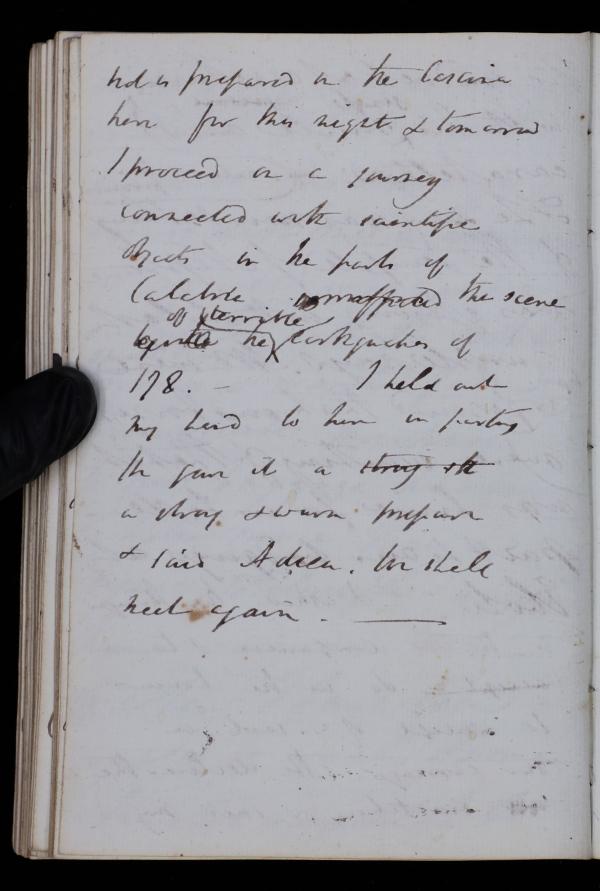 not is prepared in the Cascina
here for this night & tomorrow
I proceed on a journey
connected with scientific
objects in the parts of
Calabria the scene
of terrible
the Earthquakes of
178. — I held out
my hand to him in parting
He gave it a strong
a strong & warm pressure
& said Adieu. We shall
meet again. —